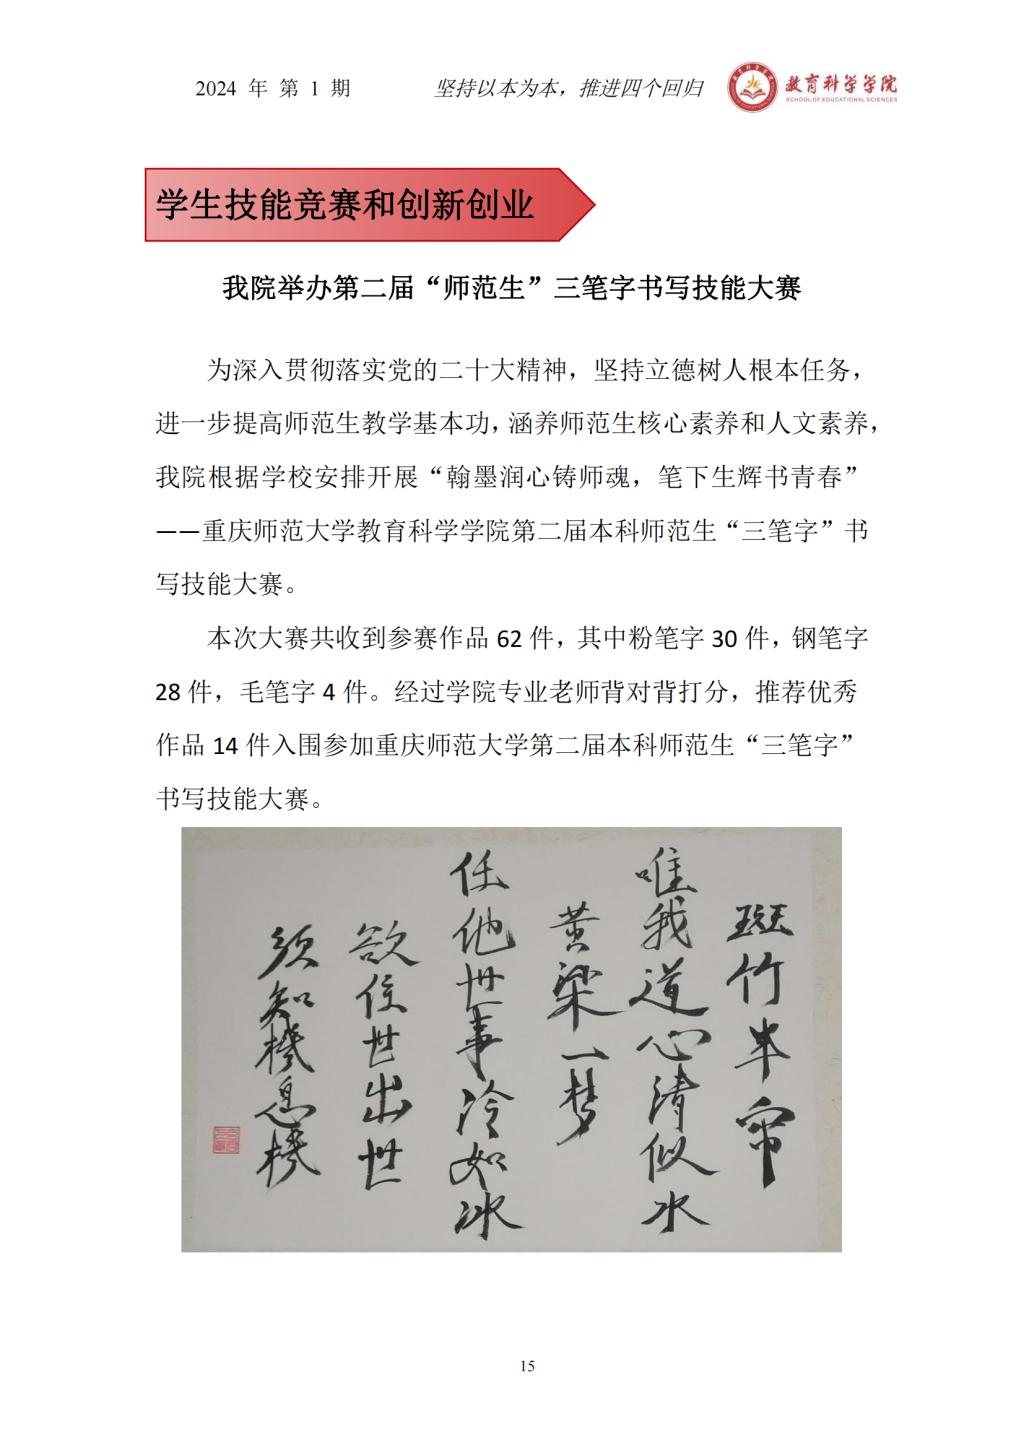 2024 年 第 1 期
坚持以本为本，推进四个回归
教育科学学院
SCHOOL OF EDUCATIONAL SCIENCES
学生技能竞赛和创新创业
我院举办第二届“师范生”三笔字书写技能大赛
为深入贯彻落实党的二十大精神，坚持立德树人根本任务，
进一步提高师范生教学基本功，涵养师范生核心素养和人文素养，
我院根据学校安排开展“翰墨润心铸师魂，笔下生辉书青春”
——重庆师范大学教育科学学院第二届本科师范生“三笔字”书
写技能大赛。
本次大赛共收到参赛作品 62 件，其中粉笔字 30 件，钢笔字
28 件，毛笔字 4 件。经过学院专业老师背对背打分，推荐优秀
作品 14 件入围参加重庆师范大学第二届本科师范生“三笔字”
书写技能大赛。
斑竹半帘
唯我道心清似水
黄梁一梦
任他世事冷如冰
欲住世出世
须知機息機
15